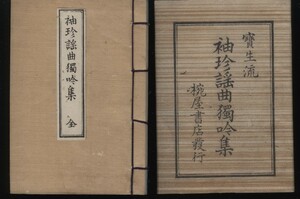 袖珍謡曲獨吟集 全
寳生流
袖珍謡曲獨吟集
椀屋書店發行